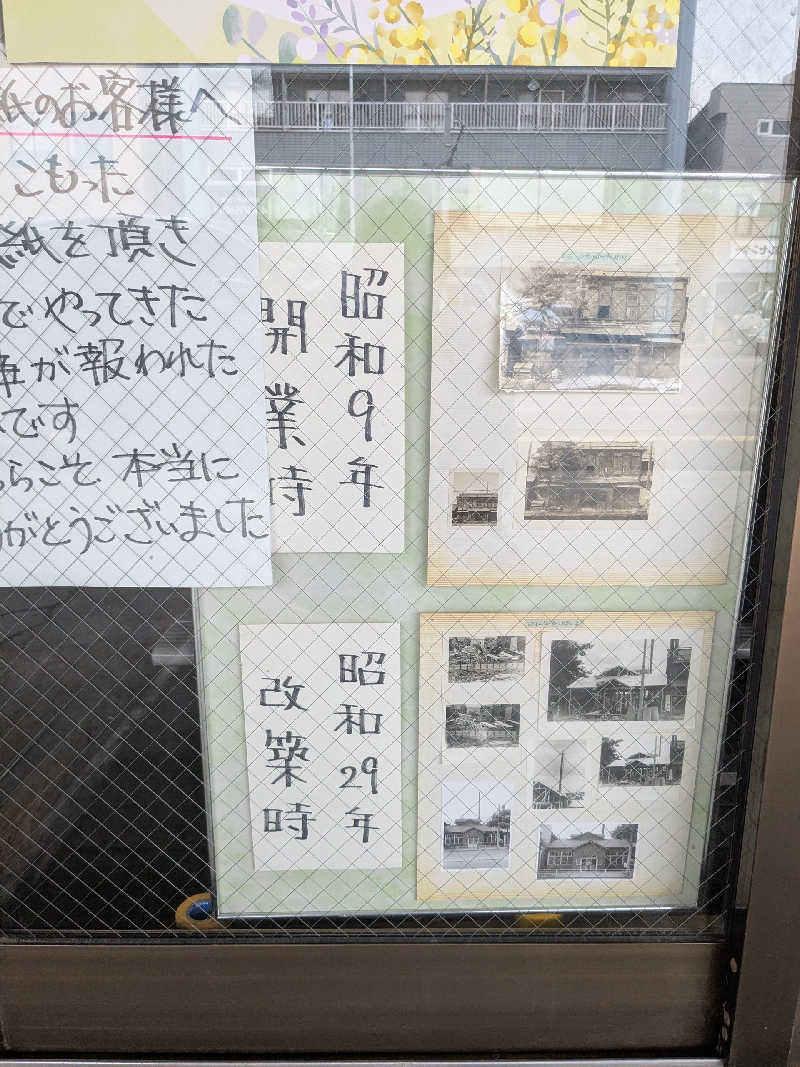 紙のお客様へ
こもった
紙を頂き
でやってきた
が報われた
です
らこそ 本当に
がとうございました
昭和9年
開業時
昭和29年
改築時